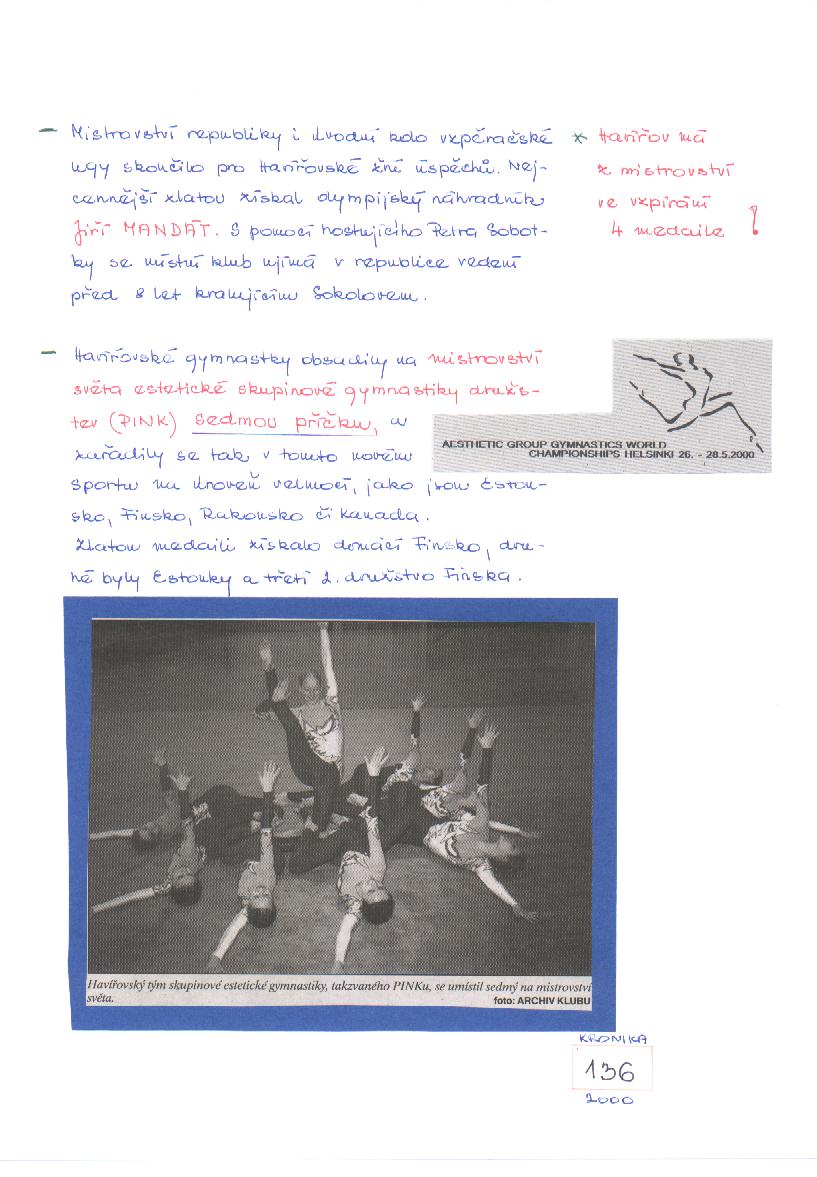 – Mistrovství republiky i úvodní kolo vzpěračské
ligy skončilo pro Havířovské žně úspěchů. Nej-
cennější zlatou získal olympijský náhradník
Jiří MANDÁT. S pomocí hostujícího Petra Sobot-
ky se místní klub ujímá v republice vedení
před 8 let kralujícím Sokolovem.
* Havířov má
z mistrovství
ve vzpírání
4 medaile !
– Havířovské gymnastky obsadily na mistrovství
světa estetické skupinové gymnastiky družs-
tev (PINK) sedmou příčku, a
zařadily se tak v tomto novém
sportu na úroveň velmocí, jako jsou Eston-
sko, Finsko, Rakousko či Kanada.
Zlatou medaili získalo domácí Finsko, dru-
hé byly Estonky a třetí 2. družstvo Finska.
AESTHETIC GROUP GYMNASTICS WORLD
CHAMPIONSHIPS HELSINKI 26. - 28.5.2000
Havířovský tým skupinové estetické gymnastiky, takzvaného PINKu, se umístil sedmý na mistrovství
světa. foto: ARCHIV KLUBU
KRONIKA
136
2000